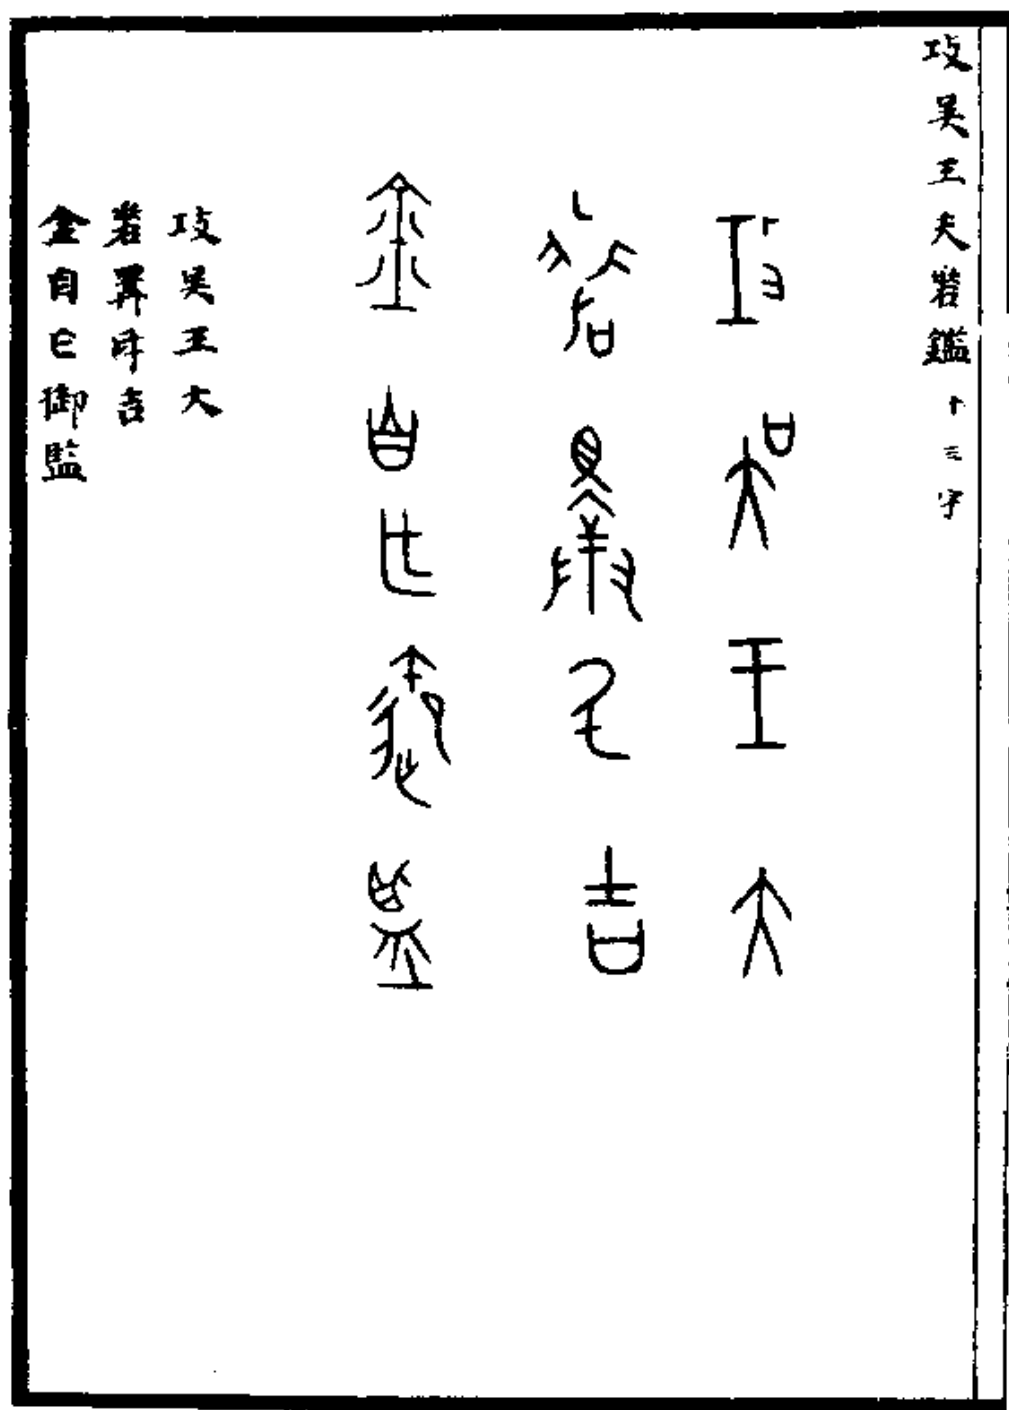 攻吴王夫差鑑十三字
攻吴王大
差擇氒吉
金自乍御監
攻吴王大
差擇氒吉
金自乍御監